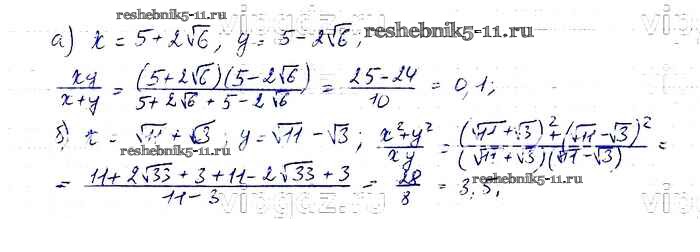 reshebnik5-11.ru
reshebnik5-11.ru
а) x = 5 + 2√6; y = 5 − 2√6;
xy/(x+y) = (5+2√6)(5−2√6)/(5+2√6+5−2√6) = (25−24)/10 = 0,1;
б) x = √11 + √3; y = √11 − √3; (x²+y²)/(xy) = ((√11+√3)²+(√11−√3)²)/((√11+√3)(√11−√3)) =
reshebnik5-11.ru
= (11+2√33+3+11−2√33+3)/(11−3) = 28/8 = 3,5.
reshebnik5-11.ru
vipgdz.ru